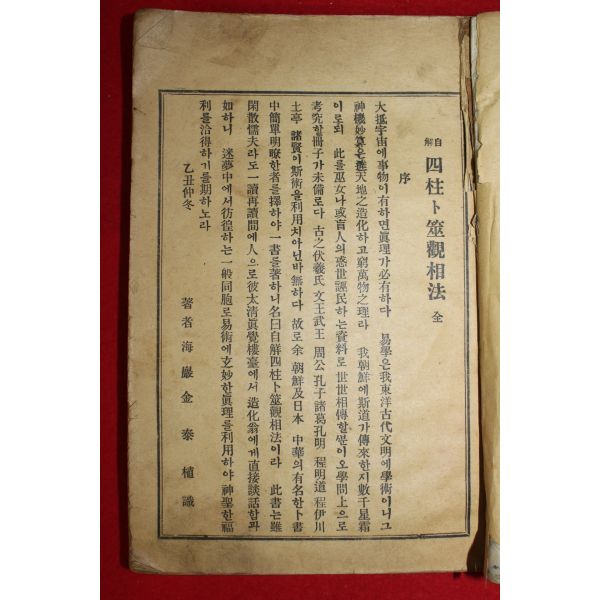 自解 四柱卜筮觀相法 全
序
大抵宇宙에事物이有하면眞理가必有하다 易學은我東洋古代文明에學術이니그
神機妙算은進天地之造化하고窮萬物之理라 我朝鮮에斯道가傳來한지數千星霜
이로되 此를巫女나或盲人의惑世誣民하는資料로世世相傳할뿐이오學問上으로
考究할冊子가未備로다 古之伏羲氏 文王武王 周公孔子諸葛孔明 程明道程伊川
土亭 諸賢이斯術을利用치아닌바無하다 故로余 朝鮮及日本 中華의有名한卜書
中簡單明瞭한者를擇하야一書를著하니名曰自解四柱卜筮觀相法이라 此書는雖
閑散懦夫라도一讀再讀間에人으로彼太淸眞覺樓臺에서 造化翁에게直接談話함과
如하니 迷夢中에서彷徨하는一般同胞로易術에玄妙한眞理를利用하야神聖한福
利를洽得하기를期하노라
乙丑仲冬
著者 海巖 金泰植 識